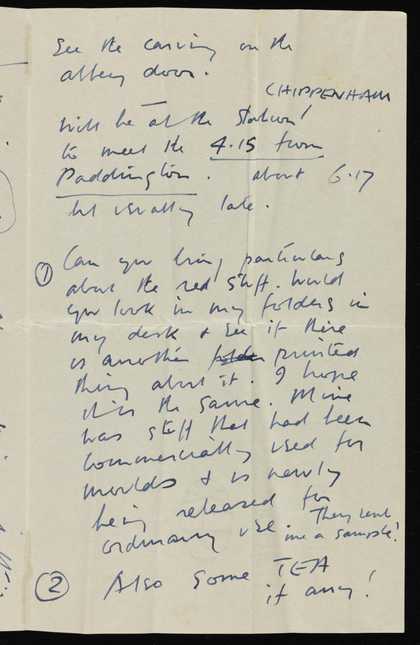 See the carving on the
abbey door.
CHIPPENHAM
Will be at the station!
to meet the 4.15 from
Paddington. about 6.17
but usually late.
① Can you bring particulars
about the red stuff. Would
you look in my folders in
my desk & see if there
is another printed
thing about it. I hope
it is the same. Mine
was stuff that had been
commercially used for
moulds & is newly
being released for
ordinary use. They sent
me a sample!
② Also some TEA
if any!